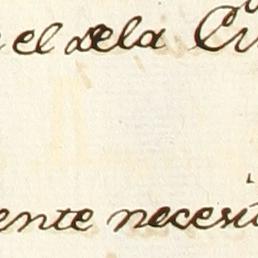 el dela
ente neces